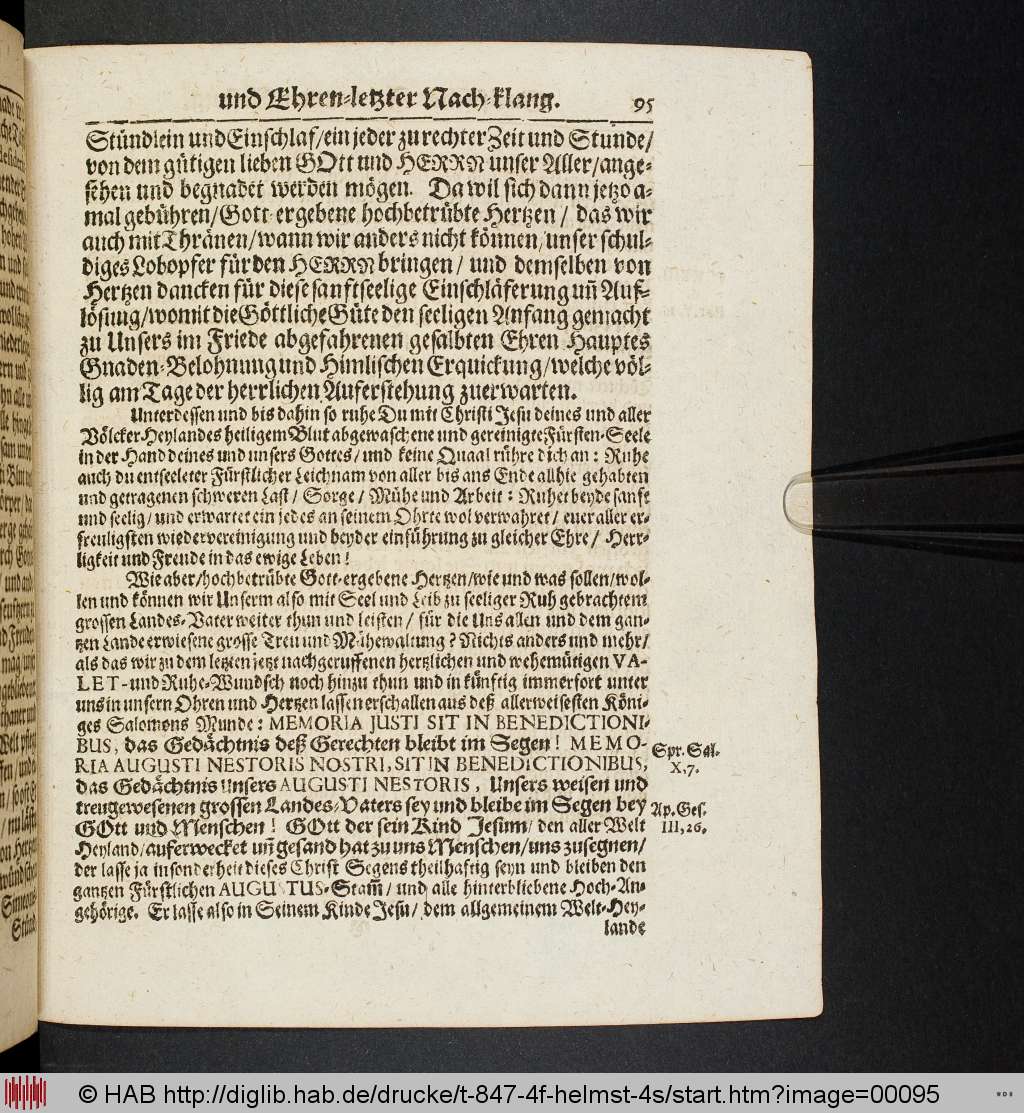 und Ehren-letzter Nach-klang. 95
Stündlein und Einschlaf/ ein jeder zu rechter Zeit und Stunde/
von dem gütigen lieben GOtt und HERRN unser Aller/ ange-
sehen und begnadet werden mögen. Da wil sich dann jetzo a-
mal gebühren/ Gott-ergebene hochbetrübte Hertzen / das wir
auch mit Thränen/ wann wir anders nicht können/ unser schul-
diges Lobopfer für den HERRN bringen / und demselben von
Hertzen dancken für diese sanftseelige Einschläferung uñ Auf-
lösung/ womit die Göttliche Güte den seeligen Anfang gemacht
zu Unsers im Friede abgefahrenen gesalbten Ehren Hauptes
Gnaden-Belohnung und Himlischen Erquickung/ welche völ-
lig am Tage der herrlichen Auferstehung zuerwarten.
Unterdessen und bis dahin so ruhe Du mit Christi Jesu deines und aller
Völcker Heylandes heiligem Blut abgewaschene und gereinigte Fürsten-Seele
in der Hand deines und unsers Gottes/ und keine Quaal rühre dich an: Ruhe
auch du entseeleter Fürstlicher Leichnam von aller bis ans Ende allhie gehabten
und getragenen schweren Last/ Sorge / Mühe und Arbeit: Ruhet beyde sanft
und seelig/ und erwartet ein jedes an seinem Ohrte wol verwahret/ euer aller er-
freuligsten wiedervereinigung und beyder einführung zu gleicher Ehre/ Herr-
ligkeit und Freude in das ewige Leben!
Wie aber/ hochbetrübte Gott-ergebene Hertzen/ wie und was sollen/ wol-
len und können wir Unserm also mit Seel und Leib zu seeliger Ruh gebrachtem
grossen Landes-Vater weiter thun und leisten / für die Uns allen und dem gan-
tzen Lande erwiesene grosse Treu und Mühewaltung? Nichts anders und mehr/
als das wir zu dem letzten jetzt nachgeruffenen hertzlichen und wehemütigen VA-
LET-und Ruhe-Wundsch noch hinzu thun und in künftig immerfort unter
uns in unsern Ohren und Hertzen lassen erschallen aus deß allerweisesten Köni-
ges Salomons Munde: MEMORIA JUSTI SIT IN BENEDICTIONI-
BUS, das Gedächtnis deß Gerechten bleibt im Segen! MEMO-
RIA AUGUSTI NESTORIS NOSTRI, SIT IN BENEDICTIONIBUS,
das Gedächtnis Unsers AUGUSTI NESTORIS, Unsers weisen und
treugewesenen grossen Landes-Vaters sey und bleibe im Segen bey
GOtt und Menschen! GOtt der sein Kind Jesum/ den aller Welt
Heyland/ auferwecket uñ gesand hat zu uns Menschen/ uns zusegnen/
der lasse ja insonderheit dieses Christ Segens theilhaftig seyn und bleiben den
gantzen Fürstlichen AUGUSTUS-Stam̃/ und alle hinterbliebene Hoch-An-
gehörige. Er lasse also in Seinem Kinde Jesu/ dem allgemeinem Welt-Hey-
lande
Spr. Sal.
X, 7.
Ap. Ges.
III, 26.
© HAB http://diglib.hab.de/drucke/t-847-4f-helmst-4s/start.htm?image=00095